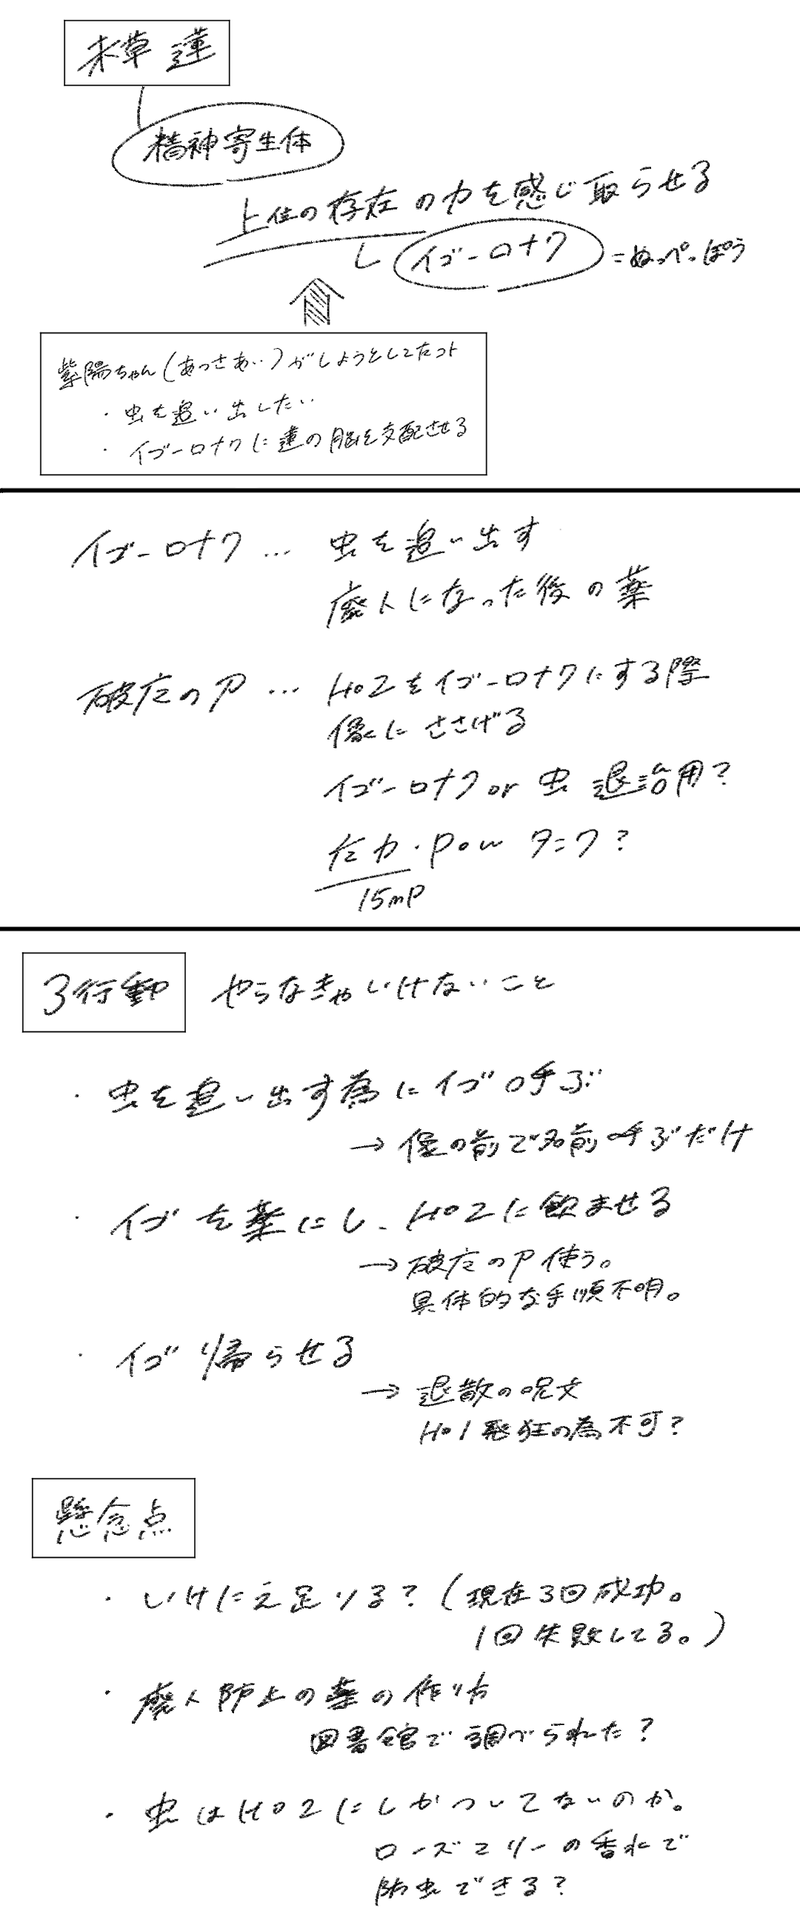 草 蓮
精神寄生体
上位の存在の力を感じ取らせる
イゴーロナク =ぬっぺっぽう
紫陽ちゃん(あっさあい)がしようとしてたコト
・虫を追い出したい
・イゴーロナクに蓮の脳を支配させる
イゴーロナク … 虫を追い出す
廃人になった後の薬
破片のP … HO2をイゴーロナクにする際
像にささげる
イゴーロナク or 虫 退治用?
魔力・POWタンク?
15MP
3行動 やらなきゃいけないこと
・虫を追い出す為にイゴ呼ぶ
→ 像の前で名前呼ぶだけ
・イゴを薬にし、HO2に飲ませる
→ 破片のP使う。
具体的な手順不明。
・イゴ帰らせる
→ 退散の呪文
HO1発狂の為不可?
懸念点
・いけにえ足りる?(現在3回成功。
1回失敗してる。)
・廃人防止の薬の作り方
図書館で調べられた?
・虫はHO2にしかついてないのか。
ローズマリーの香水で
防虫できる?